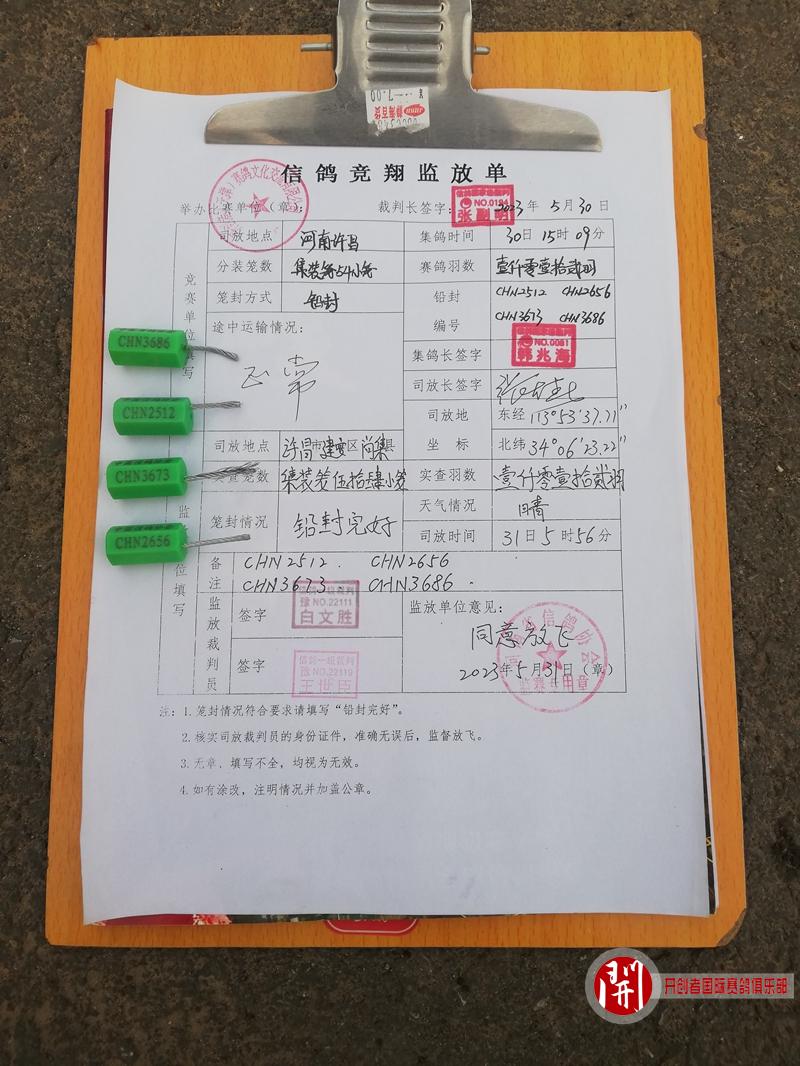 7.00
信鸽竞翔监放单
举办比赛单位(章): 裁判长签字: 2023年5月30日
NO.0194
张副明
竞赛单位填写
司放地点 河南许昌 集鸽时间 30日15时09分
分装笼数 集装笼54小笼 赛鸽羽数 壹仟零壹拾贰羽
笼封方式 铅封 铅封编号 CHN2512 CHN2656
CHN3673 CHN3686
途中运输情况: 正常
集鸽长签字 NO.0081 韩兆海
司放长签字
司放地坐标 东经113°53′37.71″
北纬34°06′23.22″
司放地点 许昌市建安区尚集县
实查笼数 集装笼伍拾肆小笼 实查羽数 壹仟零壹拾贰羽
笼封情况 铅封完好 天气情况 晴
司放时间 31日5时56分
备注 CHN2512. CHN2656
CHN3673. CHN3686.
监放裁判员
签字 豫NO.22111 白文胜
签字 信鸽一级裁判 豫NO.22119 王世臣
监放单位意见:
同意放飞
2023年5月31日(章)
注: 1.笼封情况符合要求请填写“铅封完好”。
2.核实司放裁判员的身份证件,准确无误后,监督放飞。
3.无章、填写不全,均视为无效。
4.如有涂改,注明情况并加盖公章。
CHN3686
CHN2512
CHN3673
CHN2656
開
开创者国际赛鸽俱乐部